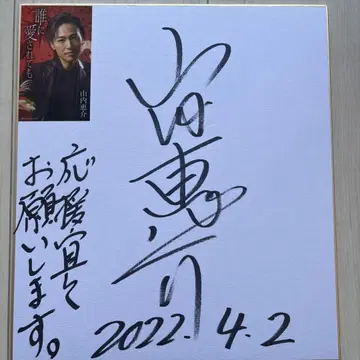 誰に愛されても
山内惠介
山内惠介
応援宜しく
お願いします。
2022.4.2